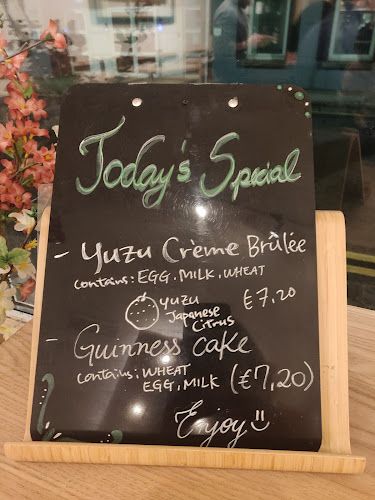 Today's Special
- Yuzu Crème Brûlée
contains: EGG, MILK, WHEAT
yuzu
Japanese
Citrus
€7,20
- Guinness cake
contains: WHEAT
EGG, MILK
(€7,20)
Enjoy